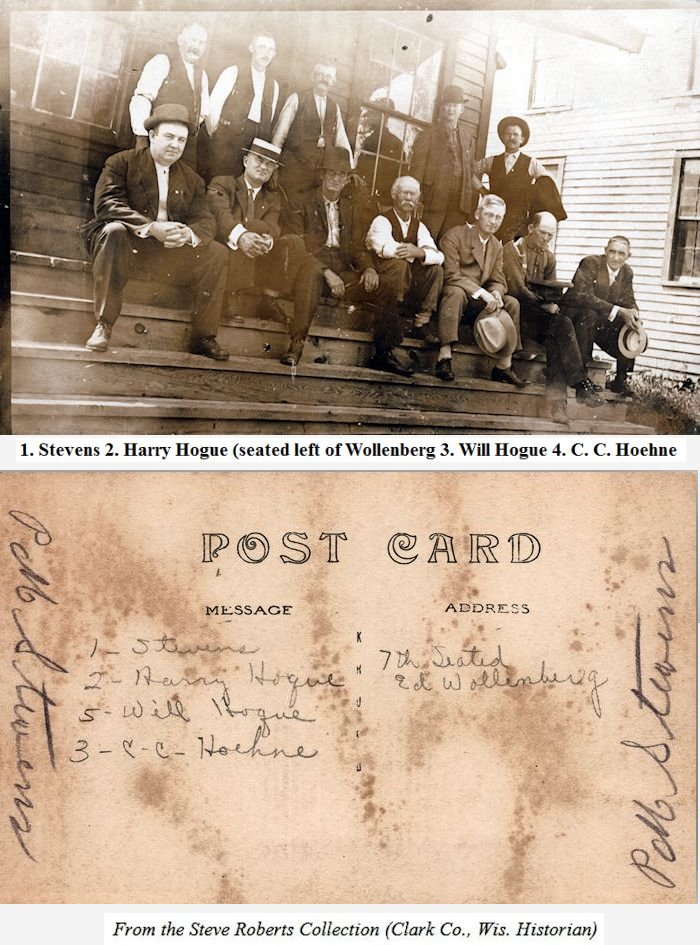 1. Stevens 2. Harry Hogue (seated left of Wollenberg 3. Will Hogue 4. C. C. Hoehne
POST CARD
MESSAGE
ADDRESS
1- Stevens
2- Harry Hogue
5- Will Hogue
3- C-C- Hoehne
7th Seated
Ed Wollenberg
Stevens
Stevens
From the Steve Roberts Collection (Clark Co., Wis. Historian)